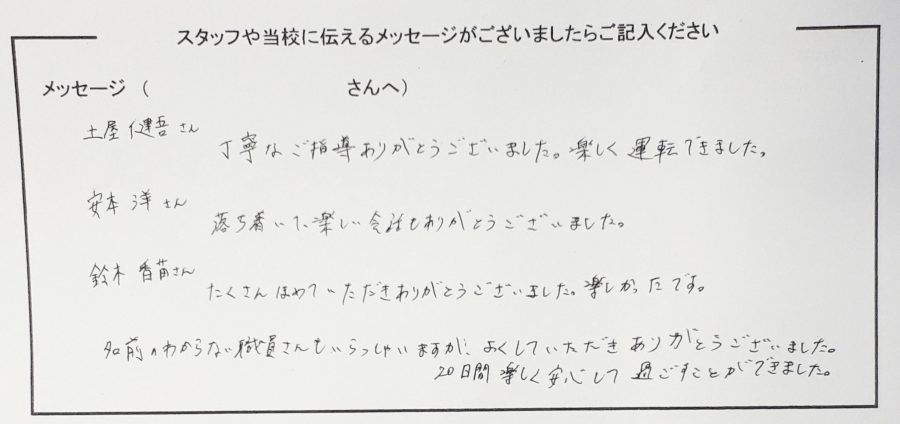 スタッフや当校に伝えるメッセージがございましたらご記入ください
メッセージ ( さんへ)
土屋 健吾さん
丁寧なご指導ありがとうございました。楽しく運転できました。
安本 洋さん
落ち着いた、楽しい会話もありがとうございました。
鈴木 香苗さん
たくさんほめていただきありがとうございました。楽しかったです。
名前のわからない職員さんもいらっしゃいますが、よくしていただきありがとうございました。
20日間楽しく安心して過ごすことができました。